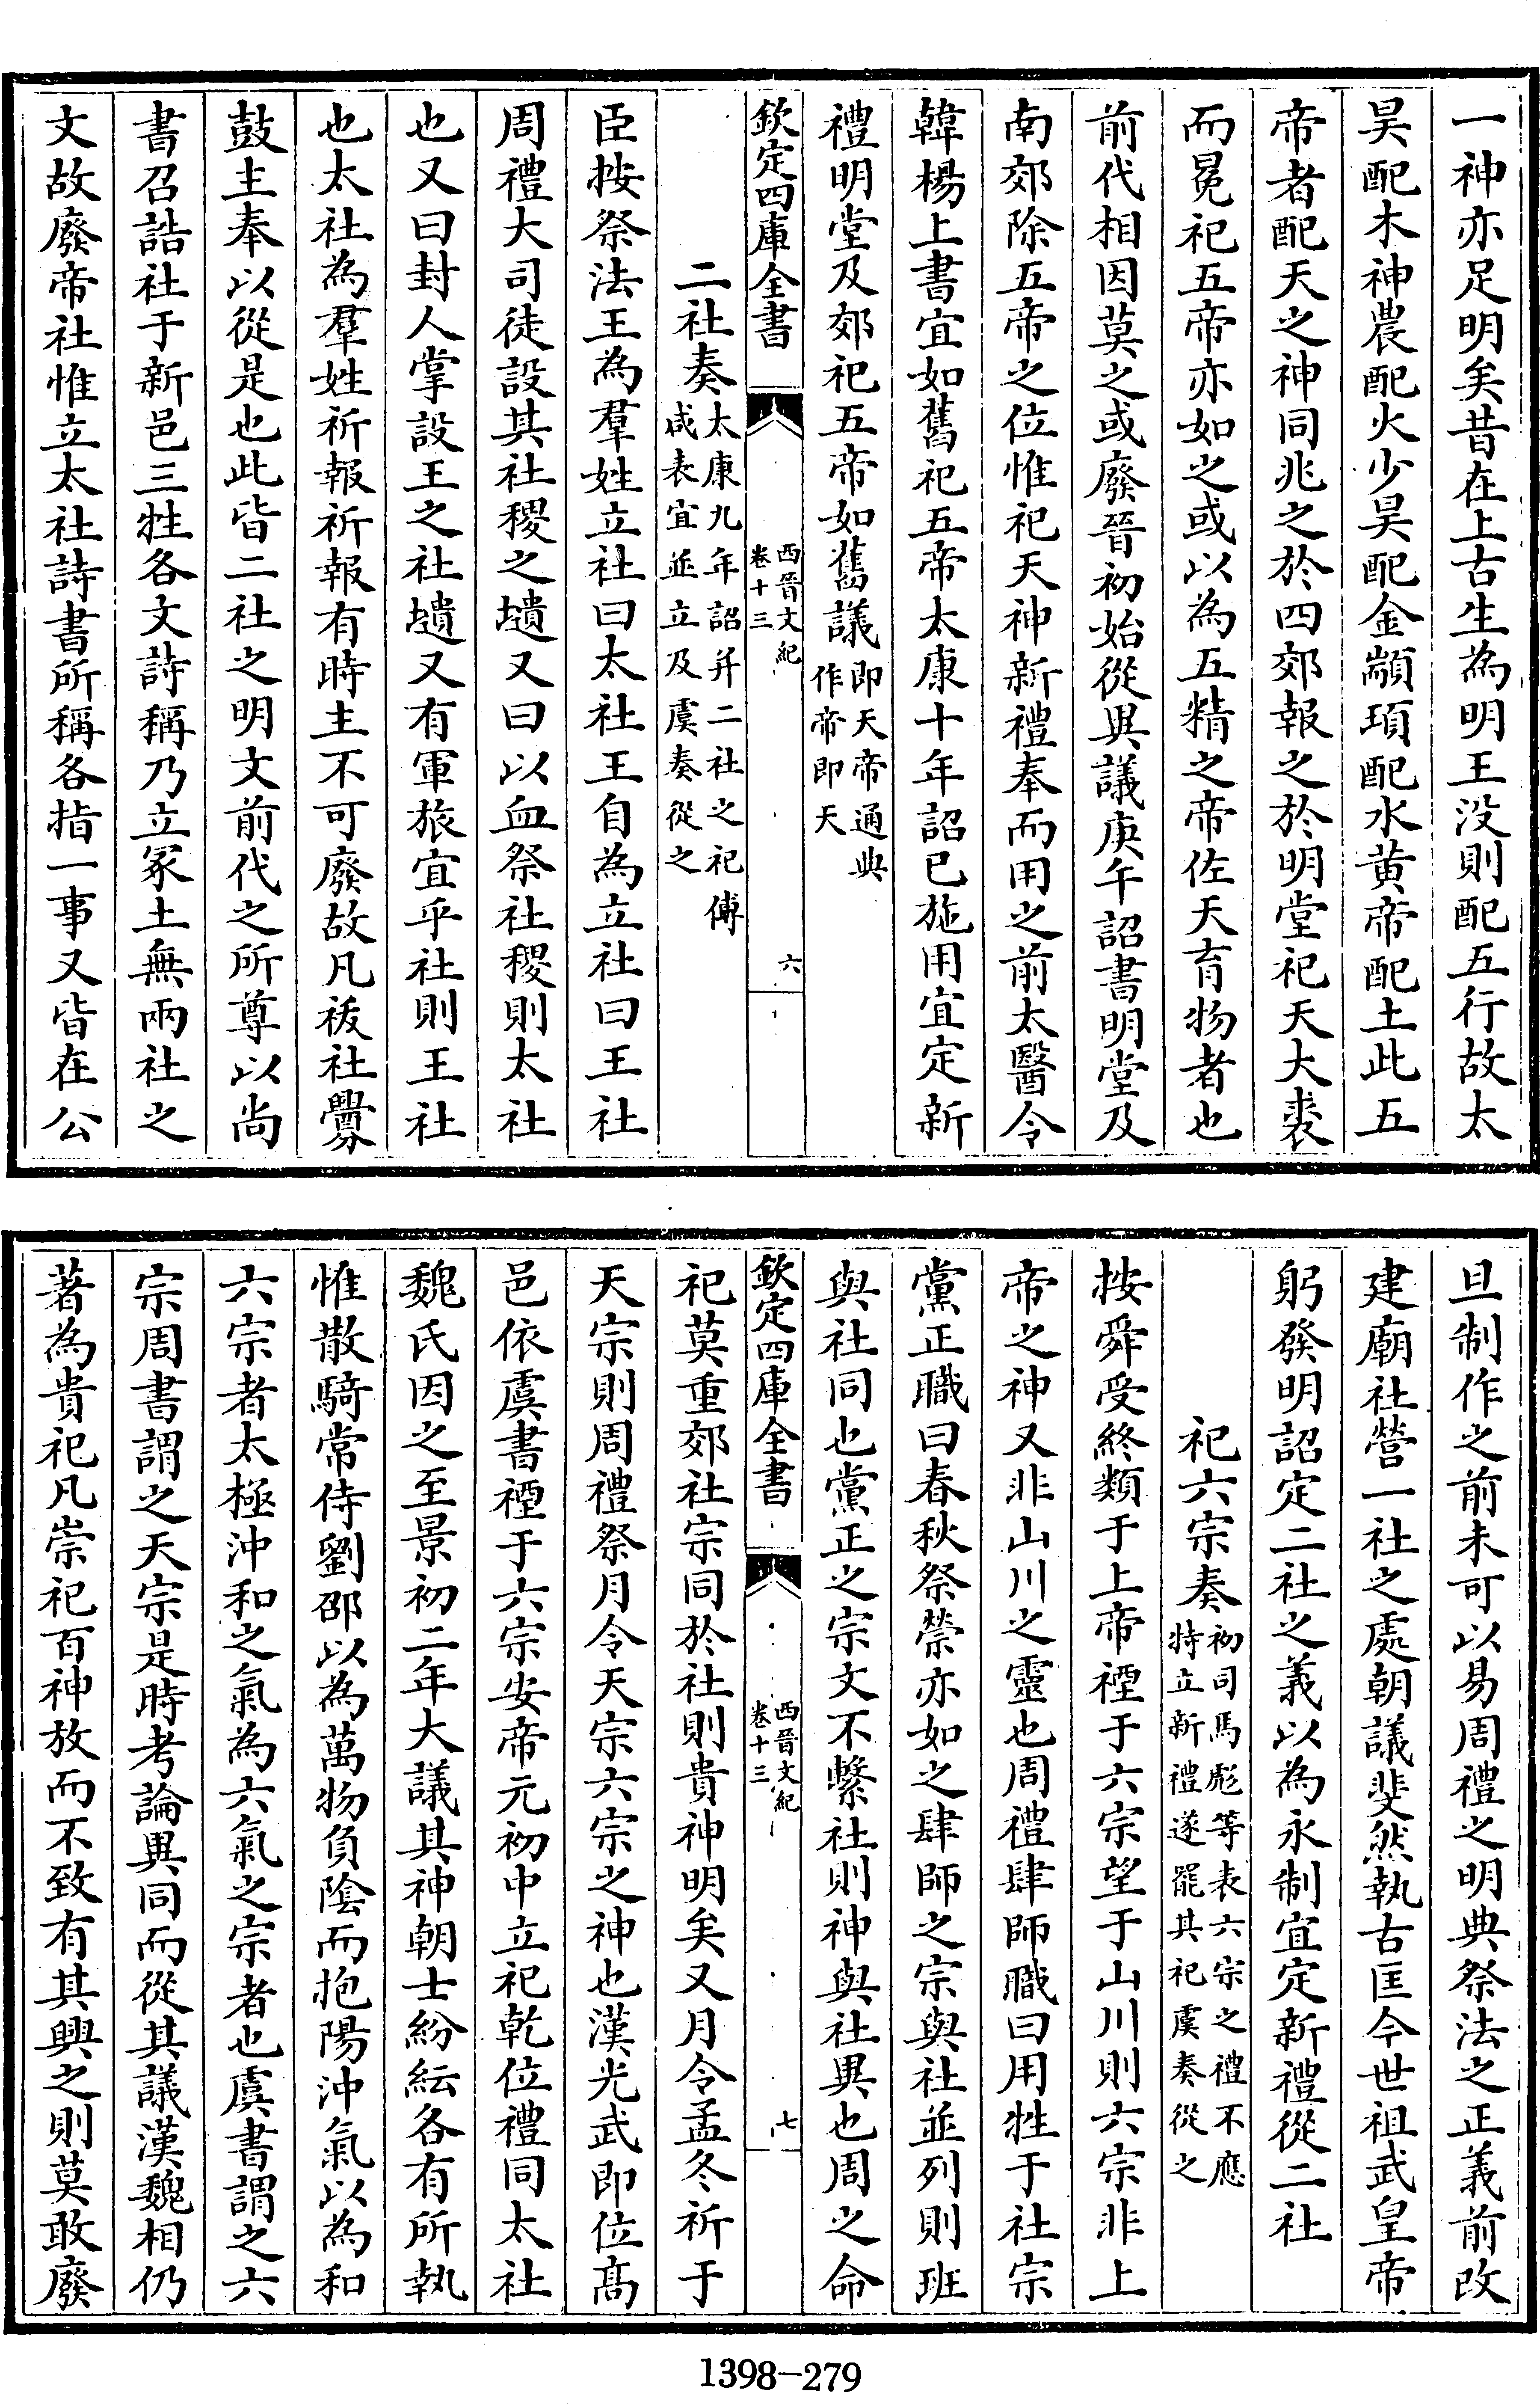 一神亦足明矣昔在上古生為明王没則配五行故太
昊配木神農配火少昊配金顓頊配水黄帝配土此五
帝者配天之神同兆之於四郊報之於明堂祀天大裘
而冕祀五帝亦如之或以為五精之帝佐天育物者也
前代相因莫之或廢晉初始從異議庚午詔書明堂及
南郊除五帝之位惟祀天神新禮奉而用之前太醫令
韓楊上書宜如舊祀五帝太康十年詔已施用宜定新
禮明堂及郊祀五帝如舊議即天帝通典
作帝即天
欽定四庫全書
西晉文紀
卷十三
六
二社奏太康九年詔并二社之祀傅
咸表宜並立及虞奏從之
臣按祭法王為羣姓立社曰太社王自為立社曰王社
周禮大司徒設其社稷之壝又曰以血祭社稷則太社
也又曰封人掌設王之社壝又有軍旅宜乎社則王社
也太社為羣姓祈報祈報有時主不可廢故凡祓社釁
鼓主奉以從是也此皆二社之明文前代之所尊以尚
書召誥社于新邑三牲各文詩稱乃立冢土無兩社之
文故廢帝社惟立太社詩書所稱各指一事又皆在公
旦制作之前未可以易周禮之明典祭法之正義前改
建廟社營一社之處朝議斐然執古匡今世祖武皇帝
躬發明詔定二社之義以為永制宜定新禮從二社
祀六宗奏初司馬彪等表六宗之禮不應
特立新禮遂罷其祀虞奏從之
按舜受終類于上帝禋于六宗望于山川則六宗非上
帝之神又非山川之靈也周禮肆師職曰用牲于社宗
黨正職曰春秋祭禜亦如之肆師之宗與社並列則班
與社同也黨正之宗文不繫社則神與社異也周之命
欽定四庫全書
西晉文紀
卷十三
七
祀莫重郊社宗同於社則貴神明矣又月令孟冬祈于
天宗則周禮祭月令天宗六宗之神也漢光武即位髙
邑依虞書禋于六宗安帝元初中立祀乾位禮同太社
魏氏因之至景初二年大議其神朝士紛紜各有所執
惟散騎常侍劉邵以為萬物負隂而抱陽沖氣以為和
六宗者太極沖和之氣為六氣之宗者也虞書謂之六
宗周書謂之天宗是時考論異同而從其議漢魏相仍
著為貴祀凡崇祀百神放而不致有其興之則莫敢廢
1398—279